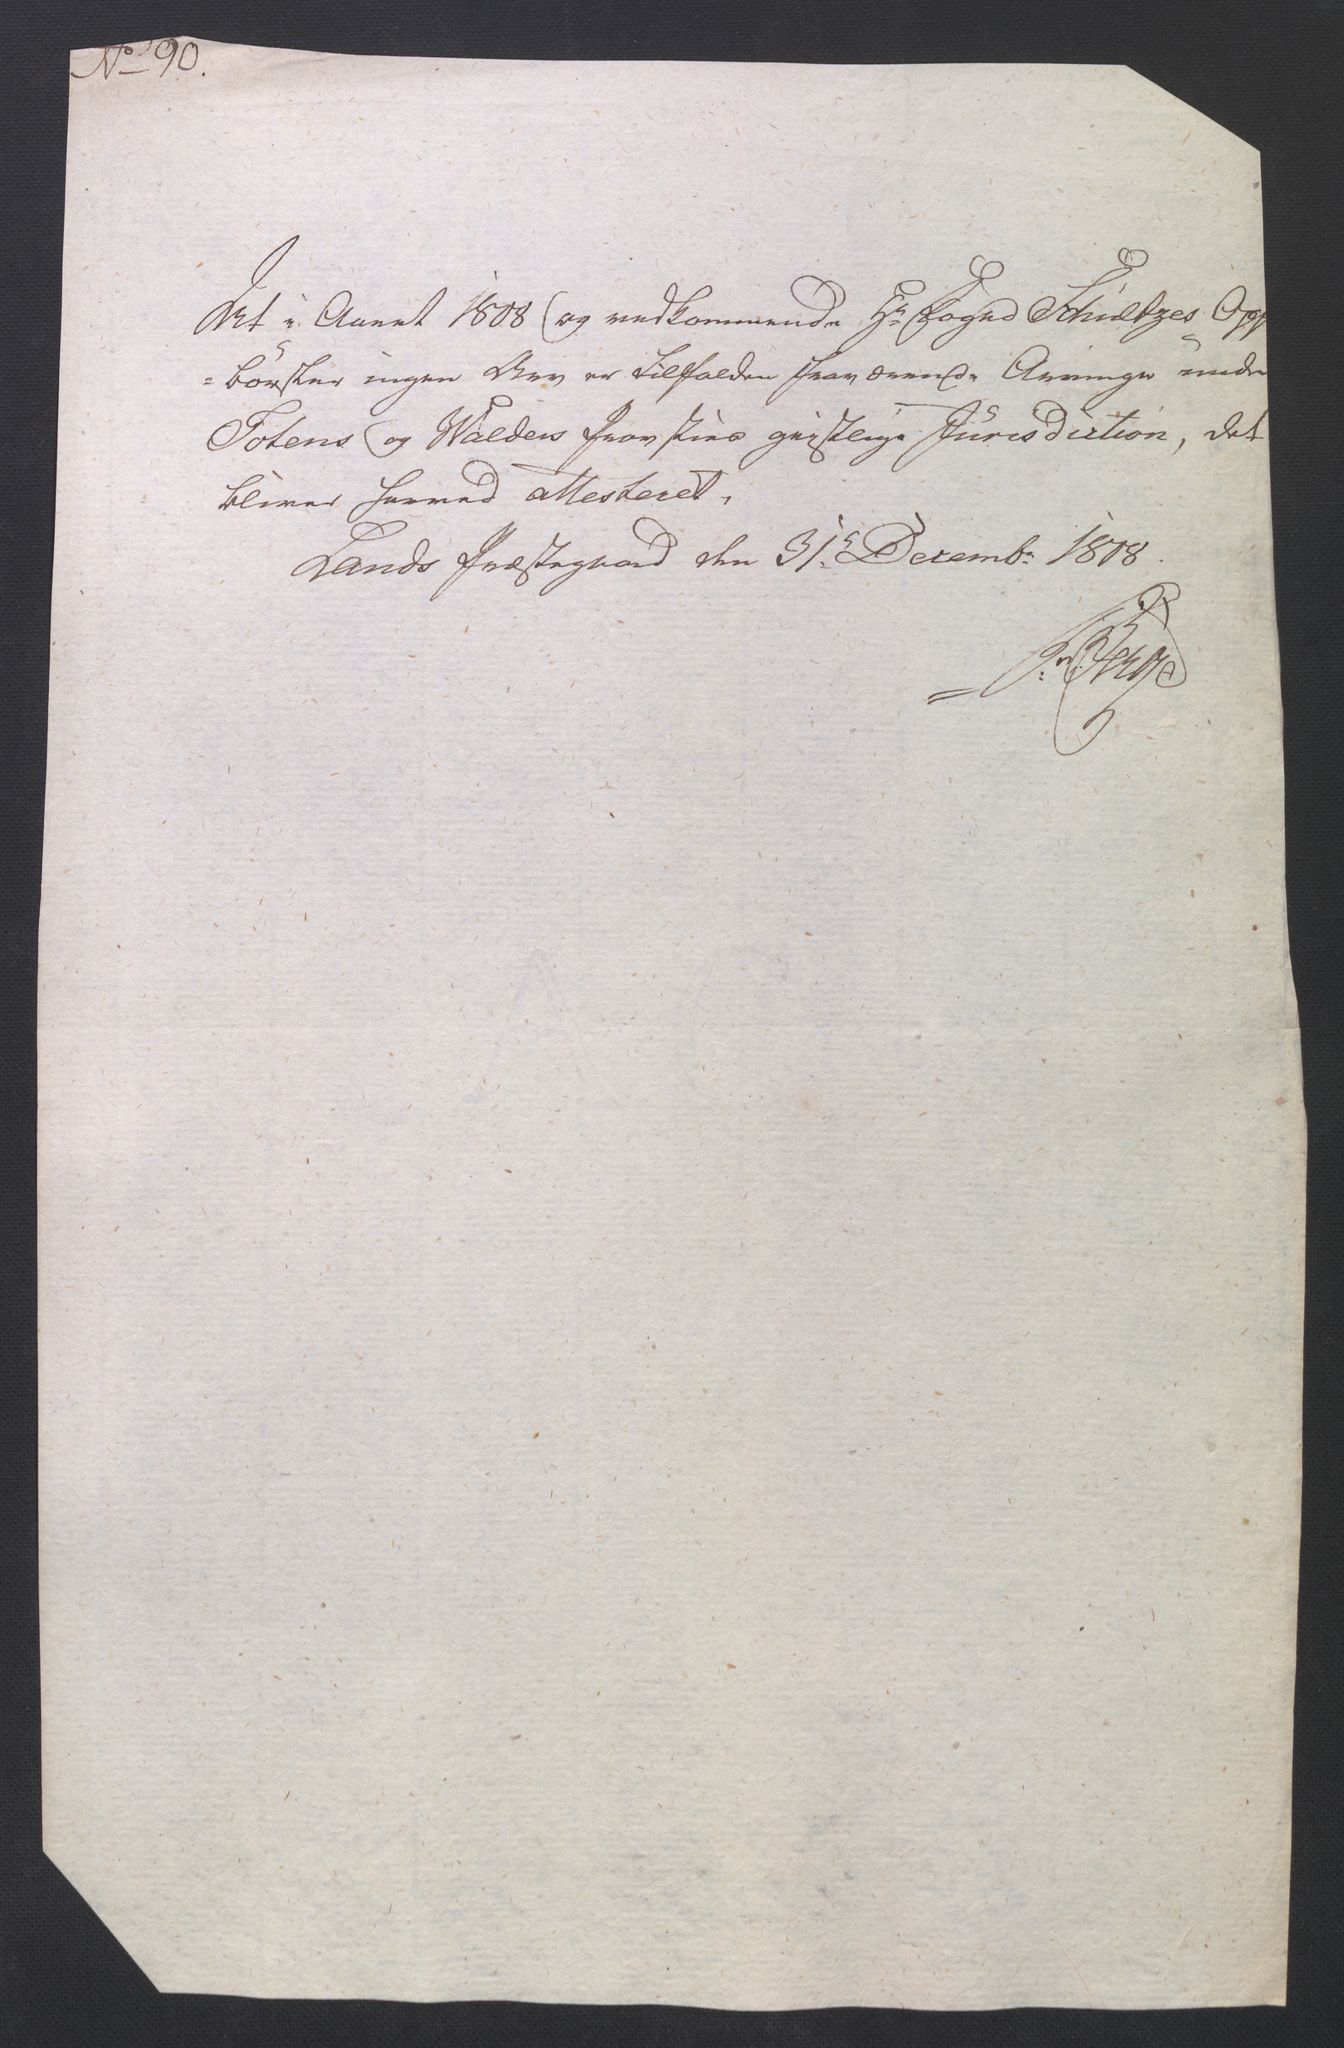 No 90.
At i Aaret 1808 og vedkommende Hr. Foged Schultzes Opp
=børsler ingen Arv er tilfalden fraværende Arvinge under
Totens og Walders Provsties geistlige Jurisdiction, det
bliver herved attesteret.
Lands Præstegaard den 31. Decembr. 1808.